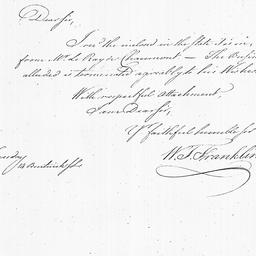 Dear Sir,
I rec'd the inclosed in the State I
from Mr. Le Ray de Chaumont — The
alluded is transacted agreeably to his Wishes
With respectful attachment,
I am Dear Sir,
Yr faithful humble Ser
W. T. Franklin